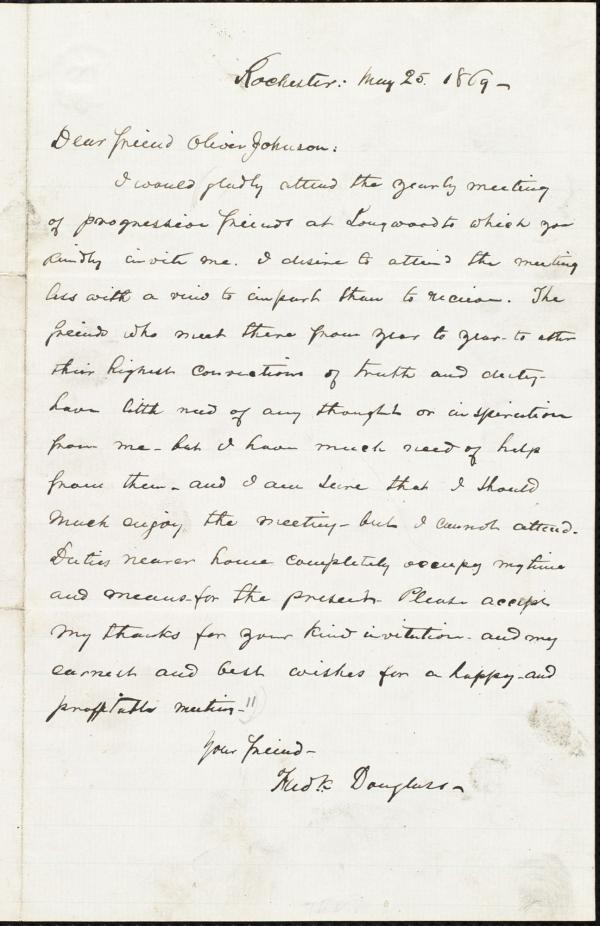 Rochester: May 25. 1869-
Dear friend Oliver Johnson:
I would gladly attend the yearly meeting
of progressive friends at Longwood to which you
kindly invite me. I desire to attend the meeting
less with a view to impart than to receive. The
friends who meet there from year to year- to utter
their highest convictions of truth and duty-
have little need of any thought or inspiration
from me- but I have much need of help
from them- and I am sure that I should
much enjoy the meeting- but I cannot attend.
Duties nearer home completely occupy my time
and means- for the present- Please accept
my thanks for your kind invitation- and my
earnest and best wishes for a happy- and
profitable meeting-"
Your friend-
Fredk Douglass-